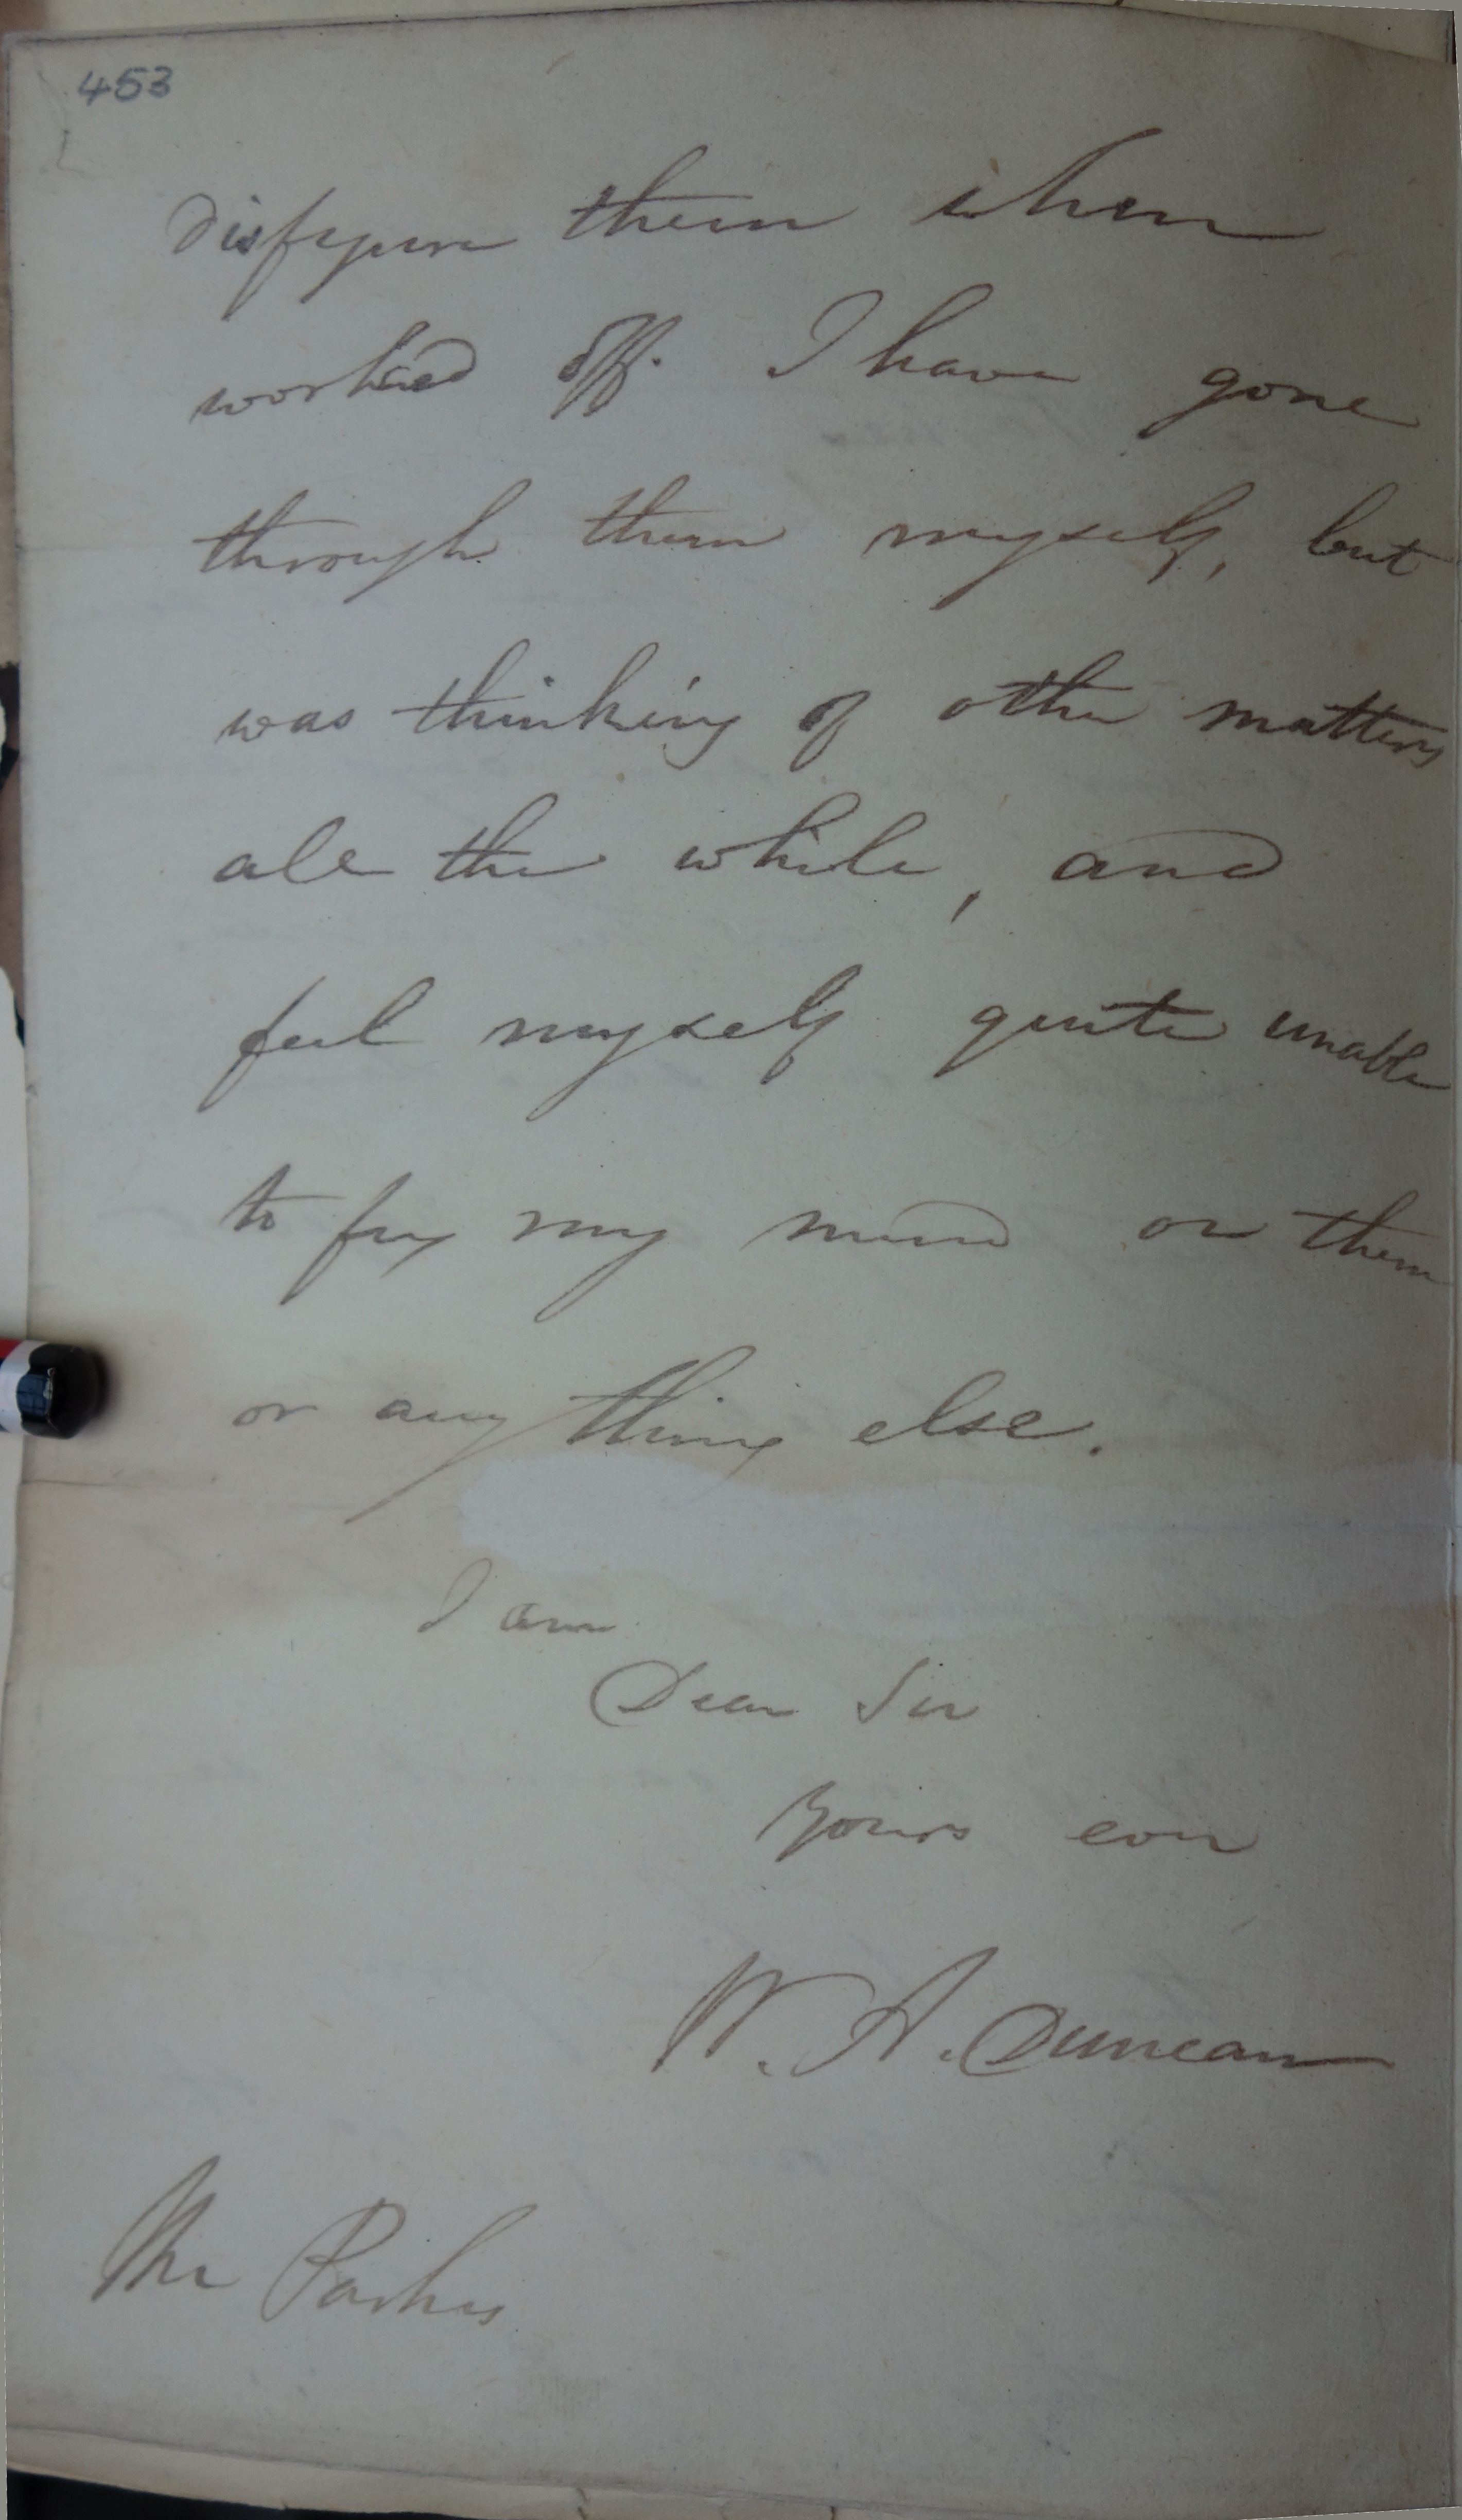 453
disfigure them when
worked off. I have gone
through them myself, but
was thinking of other matters
all the while, and
feel myself quite unable
to fix my mind on them
or any thing else.
I am
Dear Sir
Yours ever
W. A. Duncan
Mr Parkes